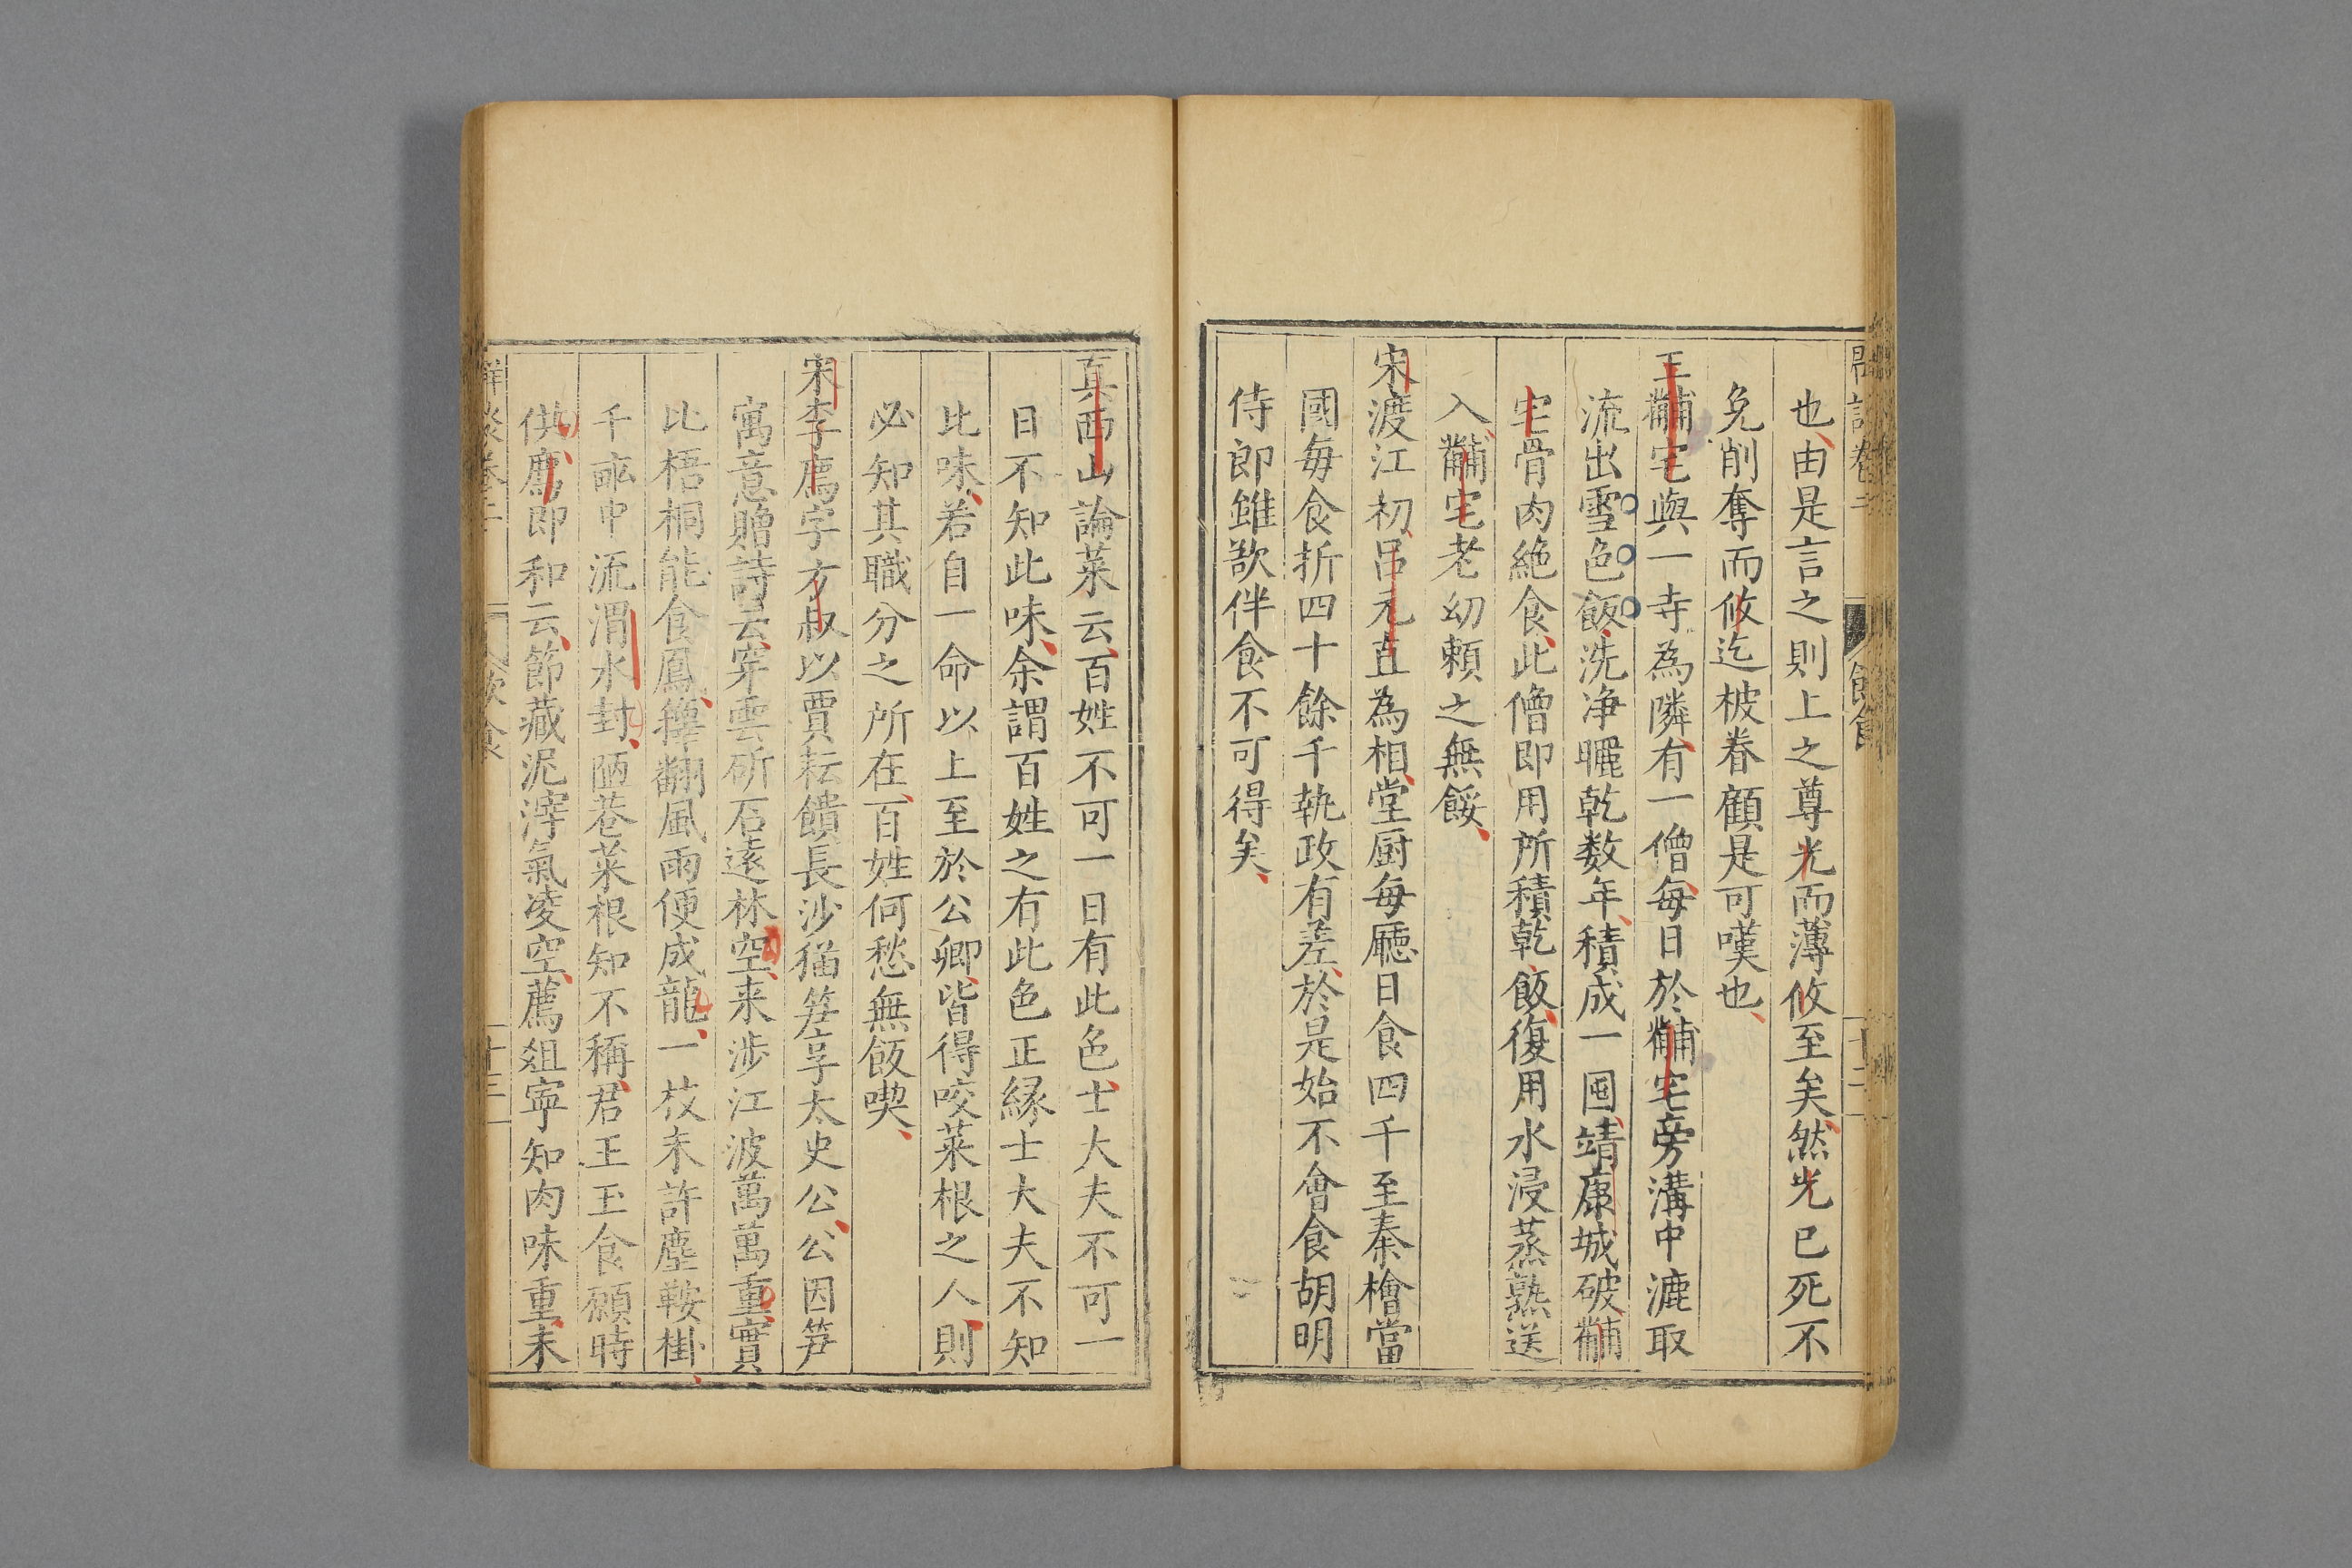 也由是言之則上之尊光而薄攸至矣然光已死不
免削奪而攸迄被眷顧是可嘆也
王黼宅與一寺為隣有一僧每日於黼宅旁溝中漉取
流出雪色飯洗净曬乾数年積成一囤靖康城破黼
宅骨肉絶食此僧即用所積乾飯復用水浸蒸熟送
入黼宅老幼頼之無餒
宋渡江初吕元直為相堂厨每廳日食四千至秦檜當
國每食折四十餘千執政有差於是始不會食胡明
侍郎雖欲伴食不可得矣
真西山論菜云百姓不可一日有此色士大夫不可一
日不知此味余謂百姓之有此色正縁士大夫不知
比味若自一命以上至於公卿皆得咬菜根之人則
必知其職分之所在百姓何愁無飯喫
宋李廌字方叔以賈耘饋長沙猫笋孚太史公公因笋
寓意贈詩云穿雲斫石遠林空来涉江波萬萬重實
比梧桐能食鳳籜翻風雨便成龍一枝未許塵鞍掛
千畝中流渭水封陋巷菜根知不稱君王玉食願時
供廌即和云節藏泥滓氣凌空薦俎寧知肉味重未
卷二
飲食
十三